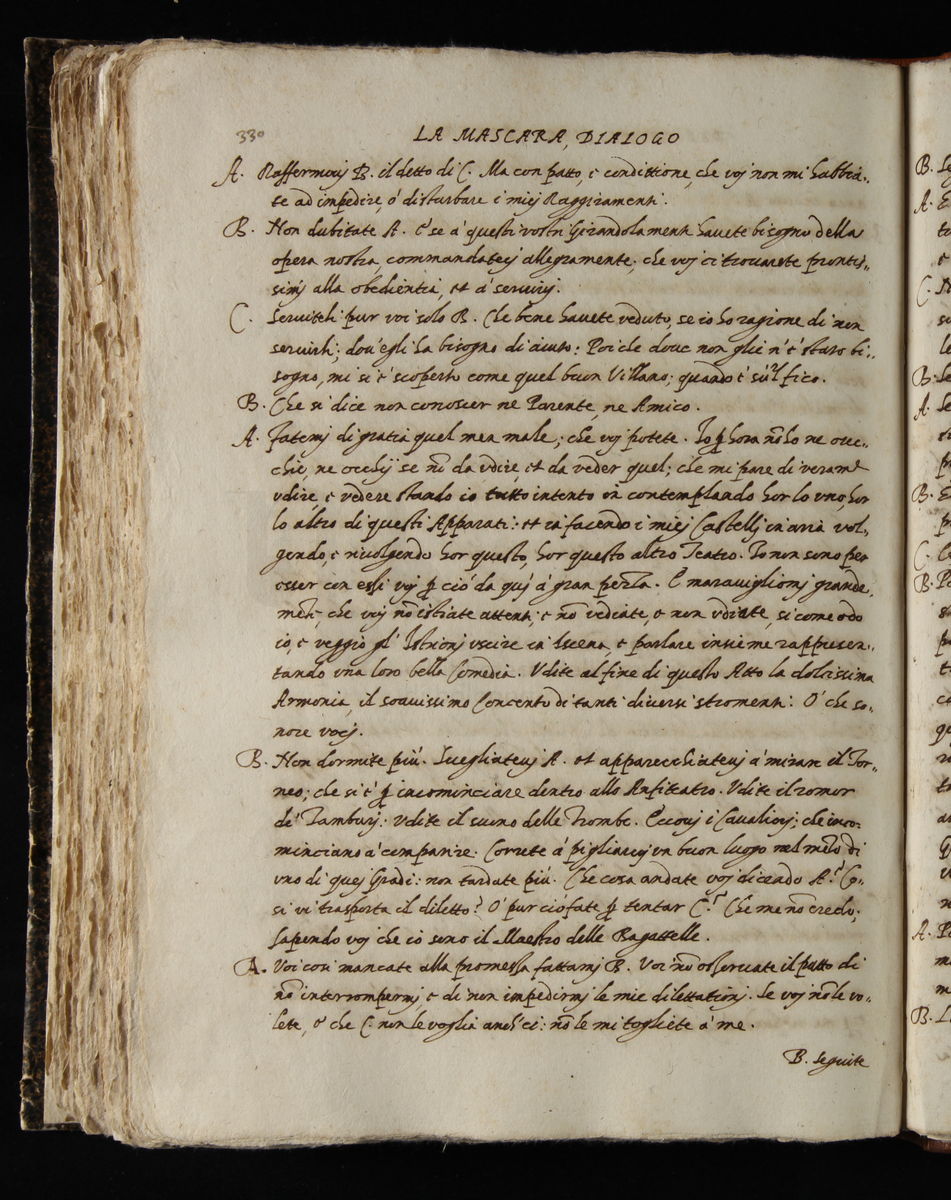 330
LA MASCARA, DIALOGO
A. Raffermovj B. il detto di C. Ma con patto, e condittione, che voj non mi habbia-
te ad impedire, ó disturbare i miej Raggiramenti.
B. Non dubitate A. E se á questi vostri Girandolamenti havete bisogno della
opera nostra, commandatecj allegramente; che voj ci trovarete prontis-
simj alla obedientia, et á servirvj.
C. Serviteli pur voi solo B. Che bene havete veduto, se io ho ragione di non
servirli; dov'egli ha bisogno di aiuto: Poi che dove non glie n'é stato bi-
sogno, mi si é scoperto come quel buon Villano; quando é sú'l fico.
B. Che si dice non conoscer ne Parente, ne Amico.
A. Fatemj di gratia quel men male; che voj potete. Io ꝑ hora nõ ho ne orec-
chie, ne occhij se nõ da vdire, et da veder quel; che mi pare di veramte
vdire, e vedere stando io tutto intento in contemplando hor lo uno, hor
lo altro di questi Apparati: et in facendo i miej Castellj in aria vol-
gendo, e rivolgendo hor questo, hor questo altro Teatro. Io non sono per
esser con essi voj ꝑ ció da quj á gran pezza. E maravigliomj grande-
mente; che voj nõ istiate attenti, e nõ vediate, e non vdiate, si come odo
io, e veggio gl' Istrionj vscire in Iscena, e parlare insieme rappresen-
tando vna loro bella Comedia. Vdite al fine di questo Atto la dolcissima
Armonia, il soavissimo Concento di tanti diversi stromenti: O' che so-
nore vocj.
B. Non dormite piú. Svegliatevj A. et apparecchiatevj á mirare il Tor-
neo; che si é ꝑ incominciare dentro allo Anfiteatro. Vdite il romor
de' Tamburj: Vdite il suono delle Trombe. Eccovj i Cavalierj; che inco-
minciano á comparire. Correte á pigliarvj vn buon luogo nel mezo di
vno di quej Gradi: non tardate piú. Che cosa andate voj dicendo A.? Co-
si vi trasporta il diletto? O' pur ció fate ꝑ tentar C.? Che me nõ credo;
sapendo voj che io sono il Maestro delle Bagattelle.
A. Voi cosi mancate alla promessa fattamj B. Voi nõ osservate il patto di
nõ interrompermj, e di non impedirmj le mie dilettationj. Se voj nõ le vo-
lete, ó che C. non le voglia anch' ei: nõ le mi togliete á me.
B. Seguite